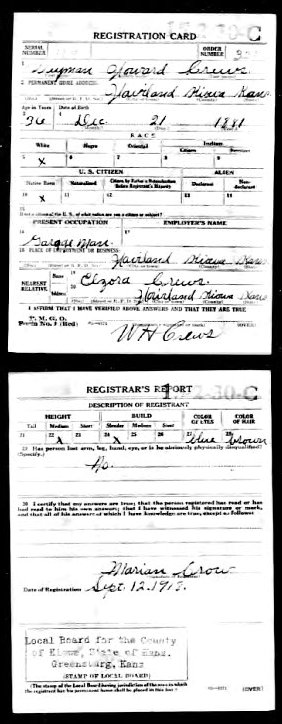 152-30-C
REGISTRATION CARD
SERIAL NUMBER
ORDER NUMBER
1
Howard Crews
2 PERMANENT HOME ADDRESS:
Haviland Kiowa Kans
Age in Years
Date of Birth
36 Dec 21 1881
RACE
White Negro Oriental Indian
Citizen Noncitizen
5 X 6 7 8 9
U. S. CITIZEN ALIEN
Native Born Naturalized Citizen by Father's Naturalization Before Registrant's Majority Declarant Non-declarant
10 X 11 12 13 14
15 If not a citizen of the U. S., of what nation are you a citizen or subject?
PRESENT OCCUPATION EMPLOYER'S NAME
16 17
Garage Man
18 PLACE OF EMPLOYMENT OR BUSINESS:
Haviland Kiowa Kan
NEAREST RELATIVE Name 19 Crews
Address 20 Haviland Kiowa Kans
I AFFIRM THAT I HAVE VERIFIED ABOVE ANSWERS AND THAT THEY ARE TRUE
P. M. G. O.
Form No. 1 (Red)
(OVER)
W H Crews
REGISTRAR'S REPORT
15 2-30-C
DESCRIPTION OF REGISTRANT
HEIGHT BUILD COLOR OF EYES COLOR OF HAIR
Tall Medium Short Slender Medium Stout
21 22 X 23 24 X 25 26 27 Blue 28 Brown
29 Has person lost arm, leg, hand, eye, or is he obviously physically disqualified?
(Specify.)
No.
30 I certify that my answers are true; that the person registered has read or has
had read to him his own answers; that I have witnessed his signature or mark,
and that all of his answers of which I have knowledge are true, except as follows:
Marian Crow
Date of Registration Sept. 12, 1918.
Local Board for the County
of Kiowa, State of Kans.
Greensburg, Kans
(STAMP OF LOCAL BOARD)
(The stamp of the Local Board having jurisdiction of the area in which
the registrant has his permanent home shall be placed in this box.)
(OVER)